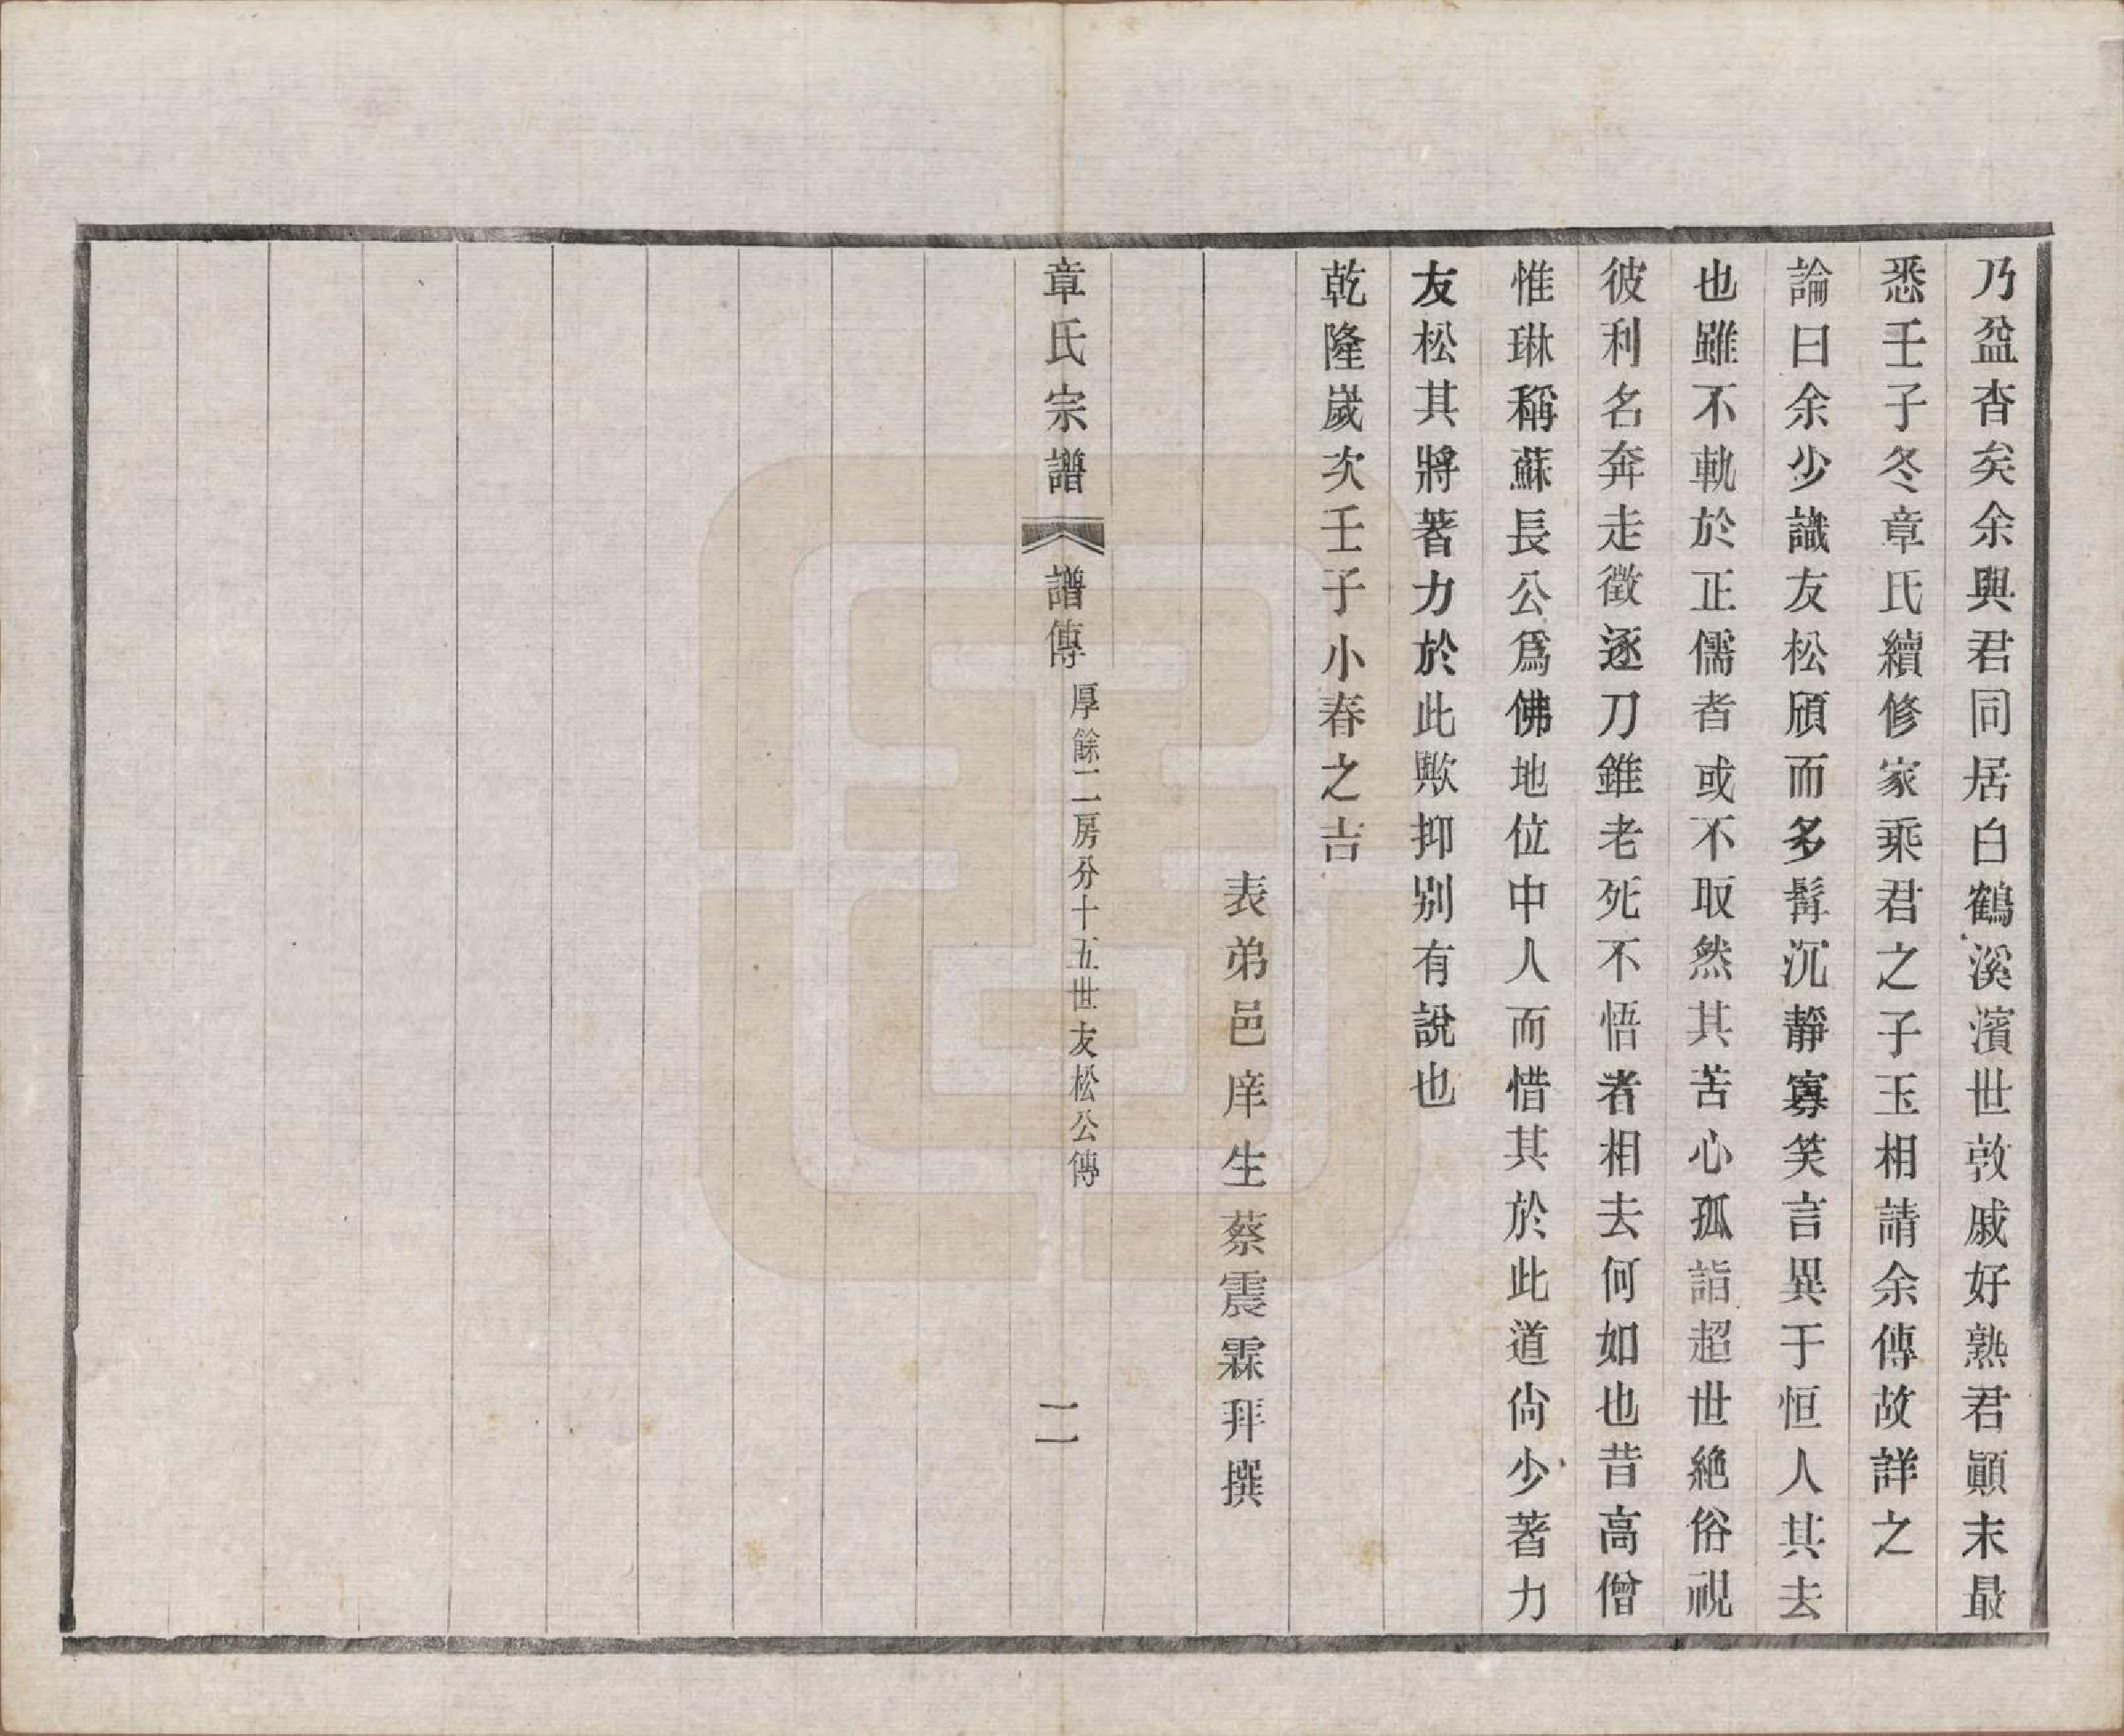 乃盆杳矣余與君同居白鶴溪濱世敦戚好熟君顚末最
悉壬子冬章氏續修家乘君之子玉相請余傳故詳之
論曰余少識友松頎而多髯沉靜寡笑言異于恒人其去
也雖不軌於正儒者或不取然其苦心孤詣超世絶俗視
彼利名奔走徵逐刀錐老死不悟者相去何如也昔高僧
惟琳稱蘇長公爲佛地位中人而惜其於此道尙少著力
友松其將著力於此歟抑别有說也
乾隆嵗次壬子小春之吉
表弟邑庠生蔡震霖拜撰
章氏宗譜 譜傳 厚餘二房分十五世友松公傳 二